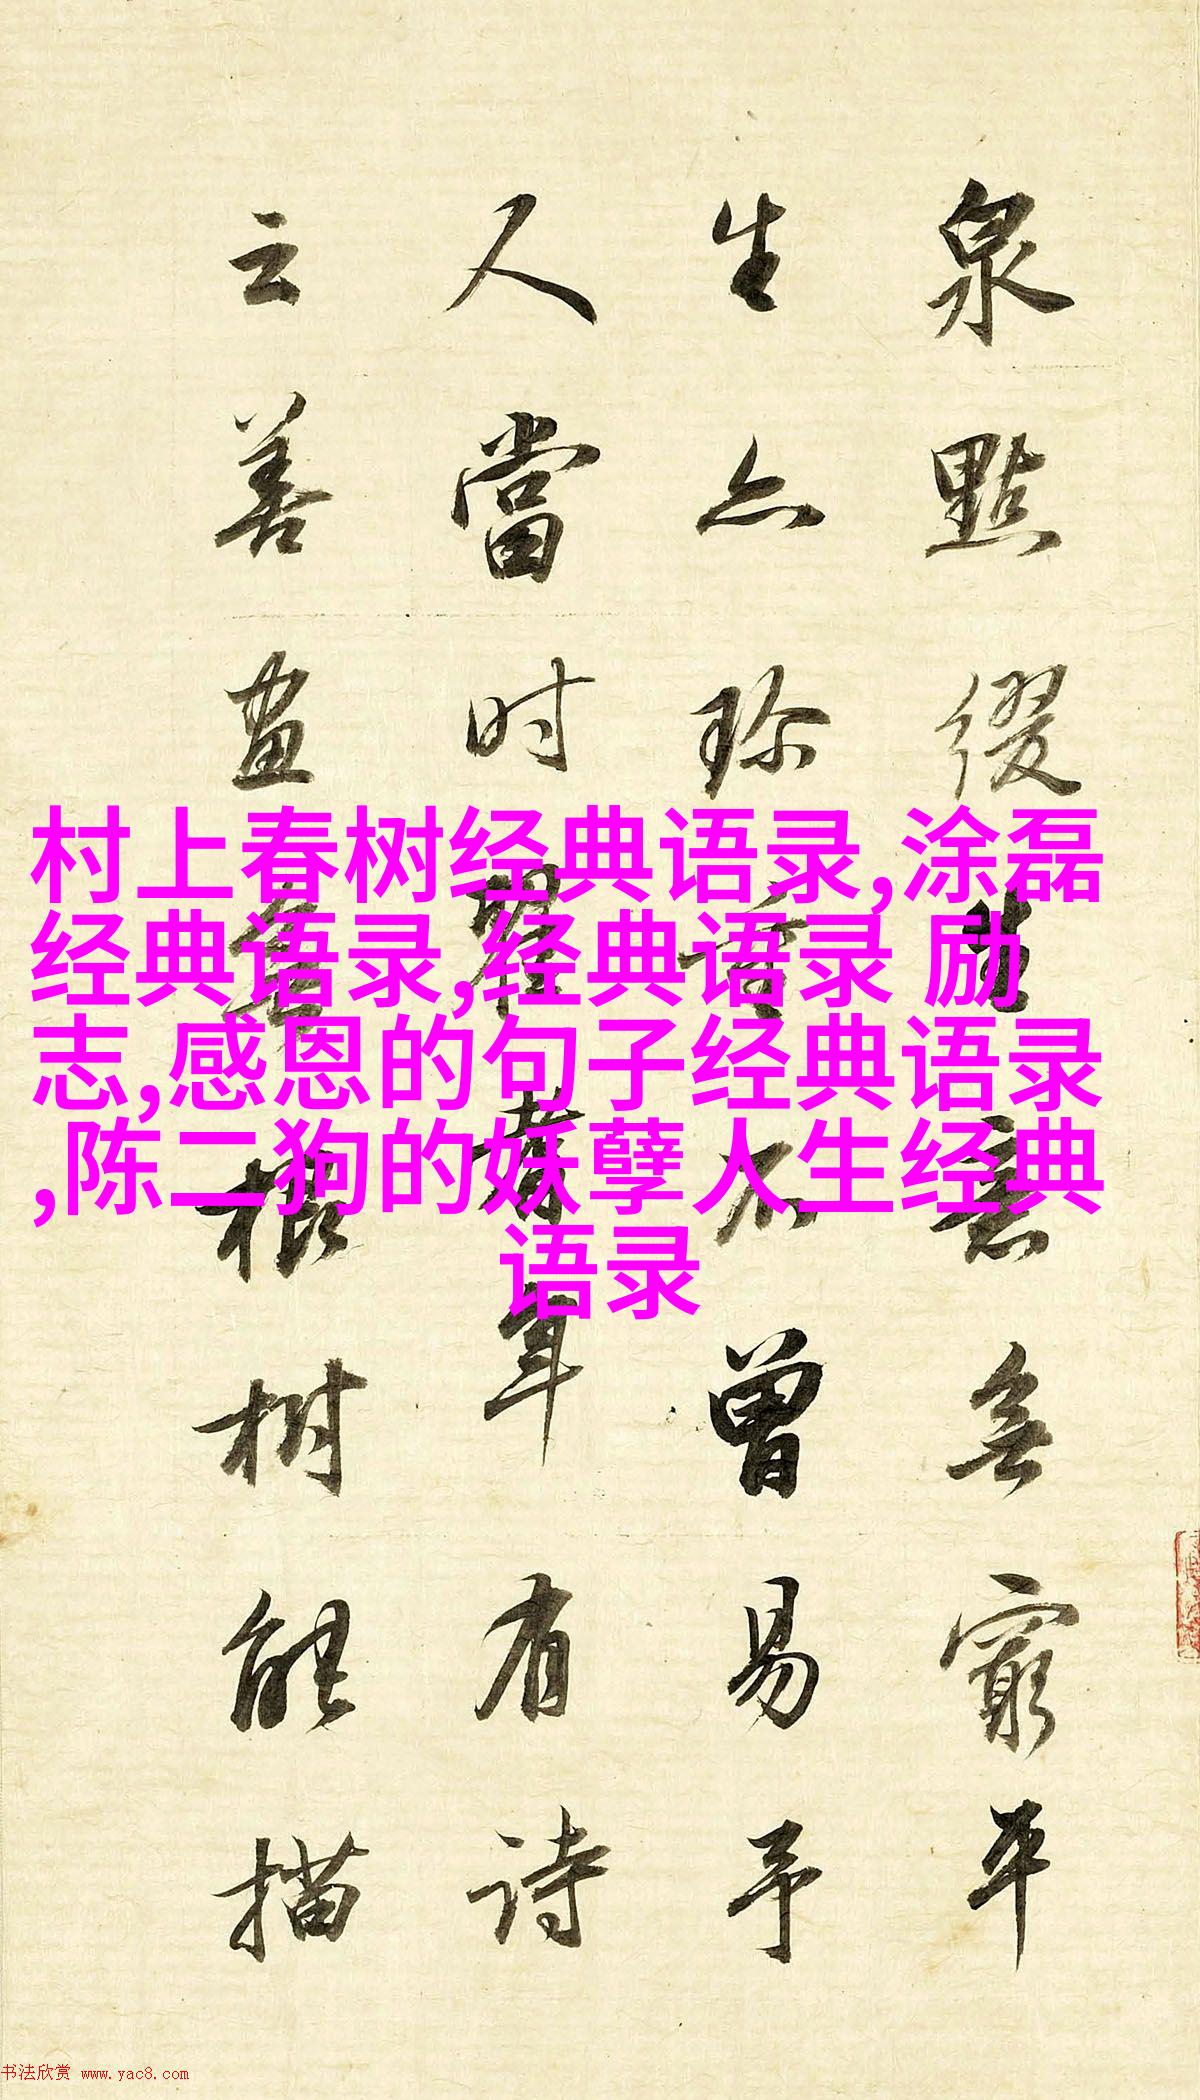 泉點綴意無窮平
生亦珍不曾易予
人當时翟耆年有诗
云善畫無根樹能描
村上春树经典语录,涂磊
经典语录,经典语录 励
志,感恩的句子经典语录
,陈二狗的妖孽人生经典
语录
书法欣赏 www.yac8.com